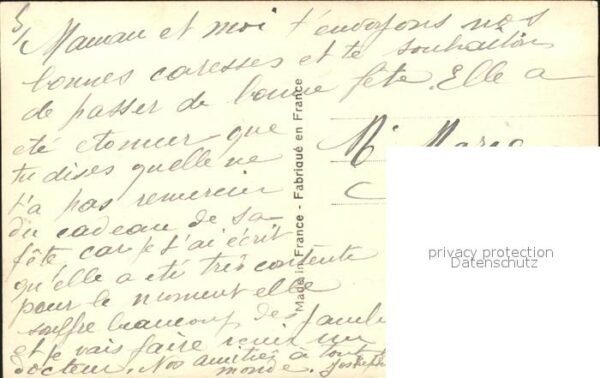 Maman et moi t'envoyons nos
bonnes caresses et te souhaitons
de passer de bonne fête. Elle a
eté etonner que
tu dises quelle ne
t'a pas remercier
du cadeau de sa
fête car je t'ai écrit
qu'elle a eté très contente
pour le moment elle
souffre beaucoup des jambes
et je vais faire venir un
docteur. Nos amitiés à tout
monde. Joseph
Made in France - Fabriqué en France
privacy protection
Datenschutz